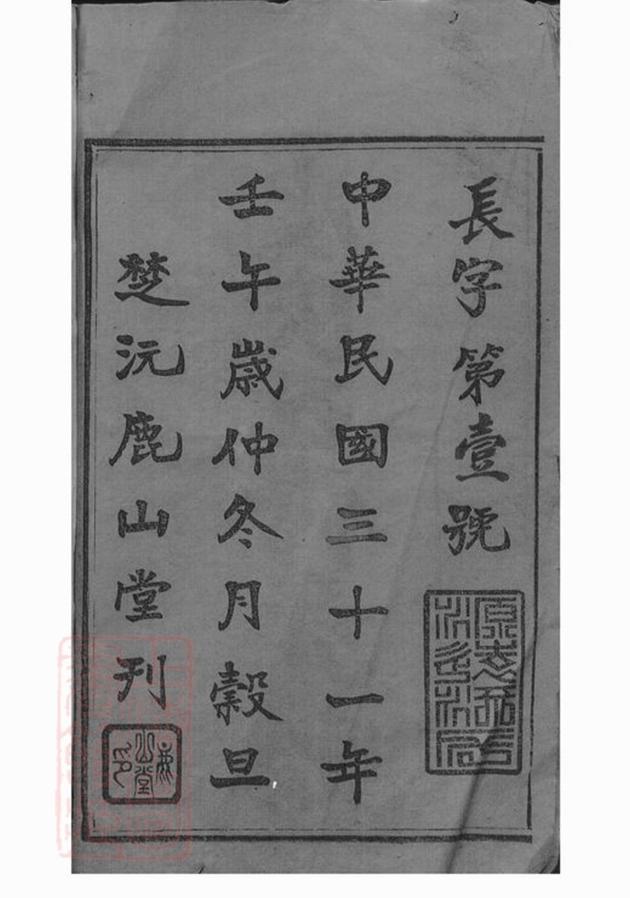 長字第壹號
中華民國三十一年
壬午歲仲冬月穀旦
楚沅鹿山堂刊
鹿山堂印